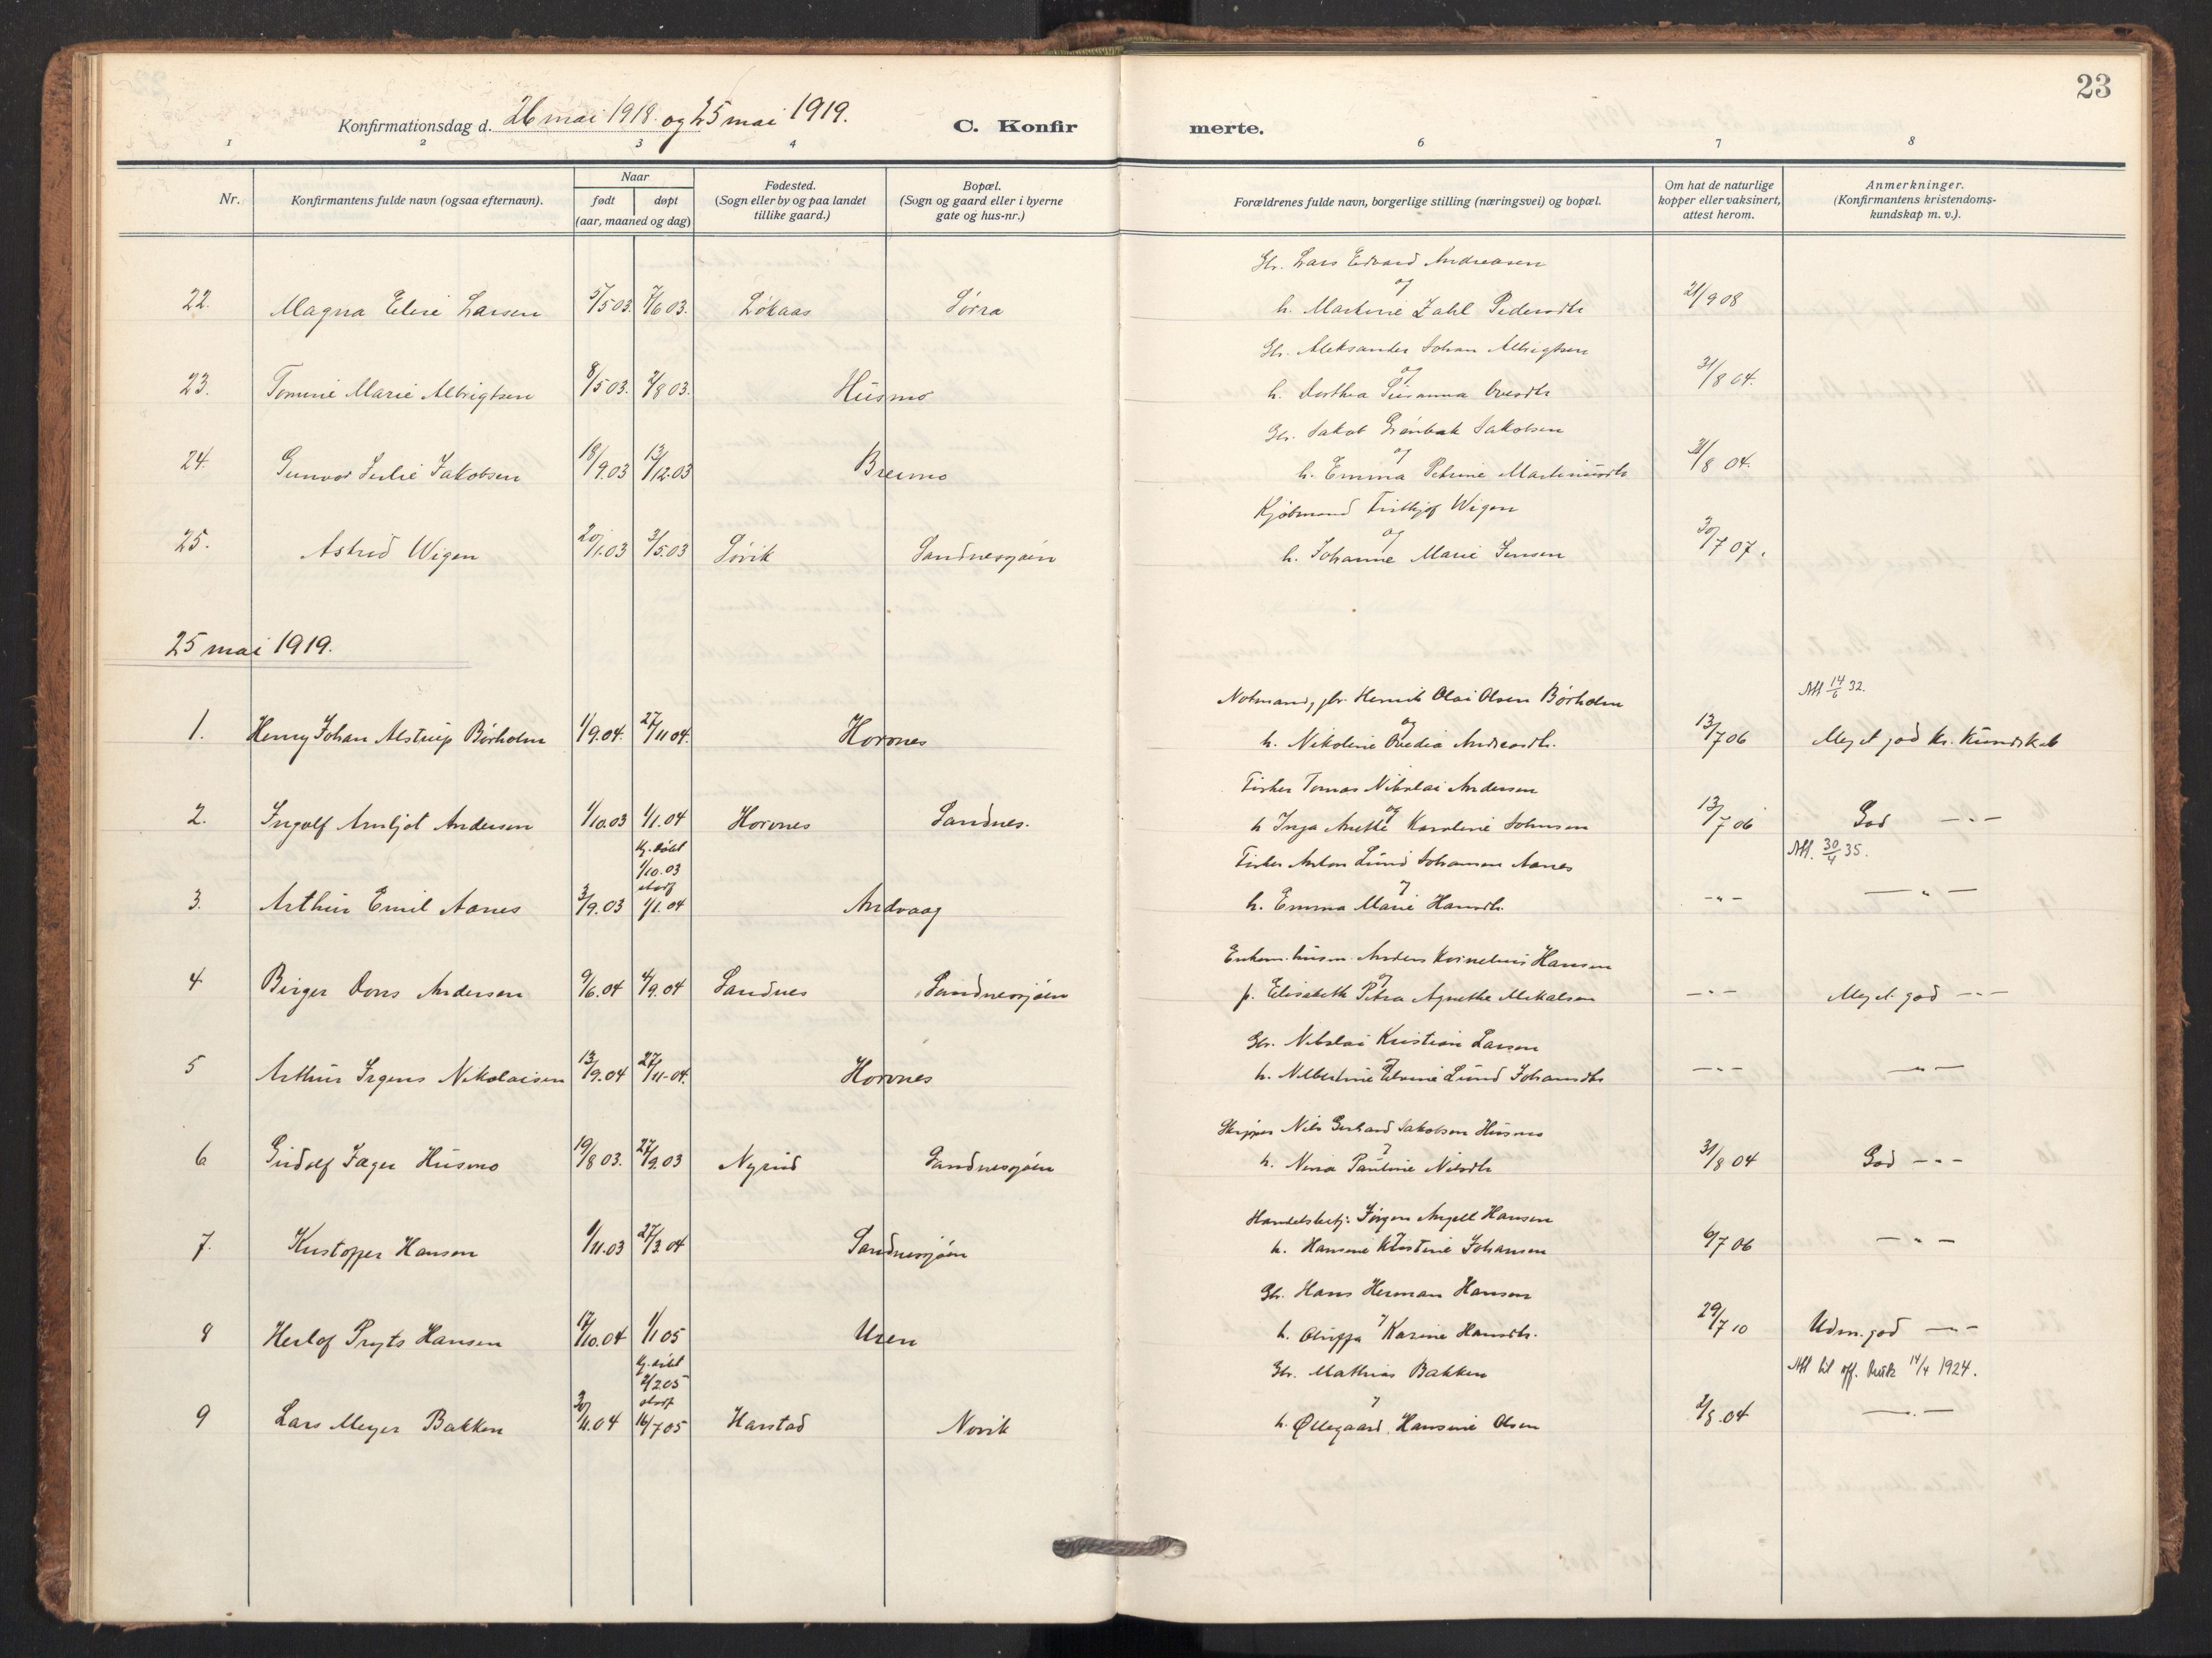 23
Konfirmationsdag d. 26 mai 1918. og 25 mai 1919. C. Konfirmerte.
1 2 3 4 6 7 8
Nr.
Konfirmantens fulde navn (ogsaa efternavn).
Naar
født døpt
(aar, maaned og dag)
Fødested.
(Sogn eller by og paa landet
tillike gaard.)
Bopæl.
(Sogn og gaard eller i byerne
gate og hus-nr.)
Forældrenes fulde navn, borgerlige stilling (næringsvei) og bopæl.
Om hat de naturlige
kopper eller vaksinert,
attest herom.
Anmerkninger.
(Konfirmantens kristendoms-
kundskap m. v.).
Gbr. Lars Edvard Andreasen
og
22. Magna Elise Larsen 5/5 03. 7/6 03. Løkaas Sørra h. Martine Zahl Pedersdtr 21/9 08
Gbr. Aleksander Johan Albrigtsen
og
23. Tomine Marie Albrigtsen 8/5 03. 2/8 03. Husmo h. Dorthea Susanna Ovesdtr 31/8 04.
Gbr. Jakob Grønbæk Jakobsen
og
24. Gunvor Julie Jakobsen 18/9.03 13/12.03 Breimo h. Emma Petrine Martinusdtr 31/8 04.
Kjøbmand Fridtjof Wigen
og
25. Astrid Wigen 20/1.03 3/5.03 Søvik Sandnessjøen h. Johanne Marie Jensen 30/7 07.
25 mai 1919.
Notmand, gbr. Henrik Olai Olsen Børholm Att 14/6 32.
og
1. Henry Johan Alstrup Børholm 1/9.04. 27/11 04. Hovones h. Nikoline Ovedia Andreasdtr. 13/7 06 Meget god kr. kundskab
Fisker Tomas Nikolai Andersen
og
2. Ingolf Arnljot Andersen 1/10.03 1/1.04 Hovones Sandnes. h Inga Anette Karoline Johnsen 13/7 06 God -"-
Fisker Anton Lund Johansen Aanes Att. 30/4 35.
hj. døbt
1/10.03
stadf
og
3. Arthur Emil Aanes 3/9.03 1/1.04 Andvaag h. Emma Marie Hansdtr. -"- -"-
Enkem. husm. Anders Kornelius Hansen
og
4 Birger Dons Andersen 9/6.04 4/9.04 Sandnes Sandnessjøen f. Elisabeth Petra Agnethe Mikalsen -"- Meget god -"-
Gbr. Nikolai Kristian Larsen
og
5 Arthur Irgens Nikolaisen 13/9.04 27/11-04. Hovones h. Albertine Elvine Lund Johansdtr -"- -"-
Skipper Nils Gerhard Jakobsen Husmo
og
6 Gudolf Jæger Husmo 19/8 03. 27/9.03 Nyrud Sandnessjøen h. Nina Pauline Nilsdtr 31/8 04 God -"-
Handelsbetj. Jørgen Angell Hansen
7. Kristoffer Hansen 1/11.03 27/3.04 Sandnessjøen h. Hansine Kristine Johansen 6/7 06 -"-
Gbr. Hans Herman Hansen
og
8 Herlof Pryts Hansen 17/10.04 1/1 05 Uren h. Oluffa Karine Hansdtr. 29/7 10 Udm. god -"-
Gbr. Mathias Bakken Att til off. bruk 14/4 1924.
hj. døbt
2/2 05
stadf
og
9 Lars Meyer Bakken 30/11.04 16/7 05 Harstad Novik h. Øllegaard Hansine Olsen 2/8.04 -"-